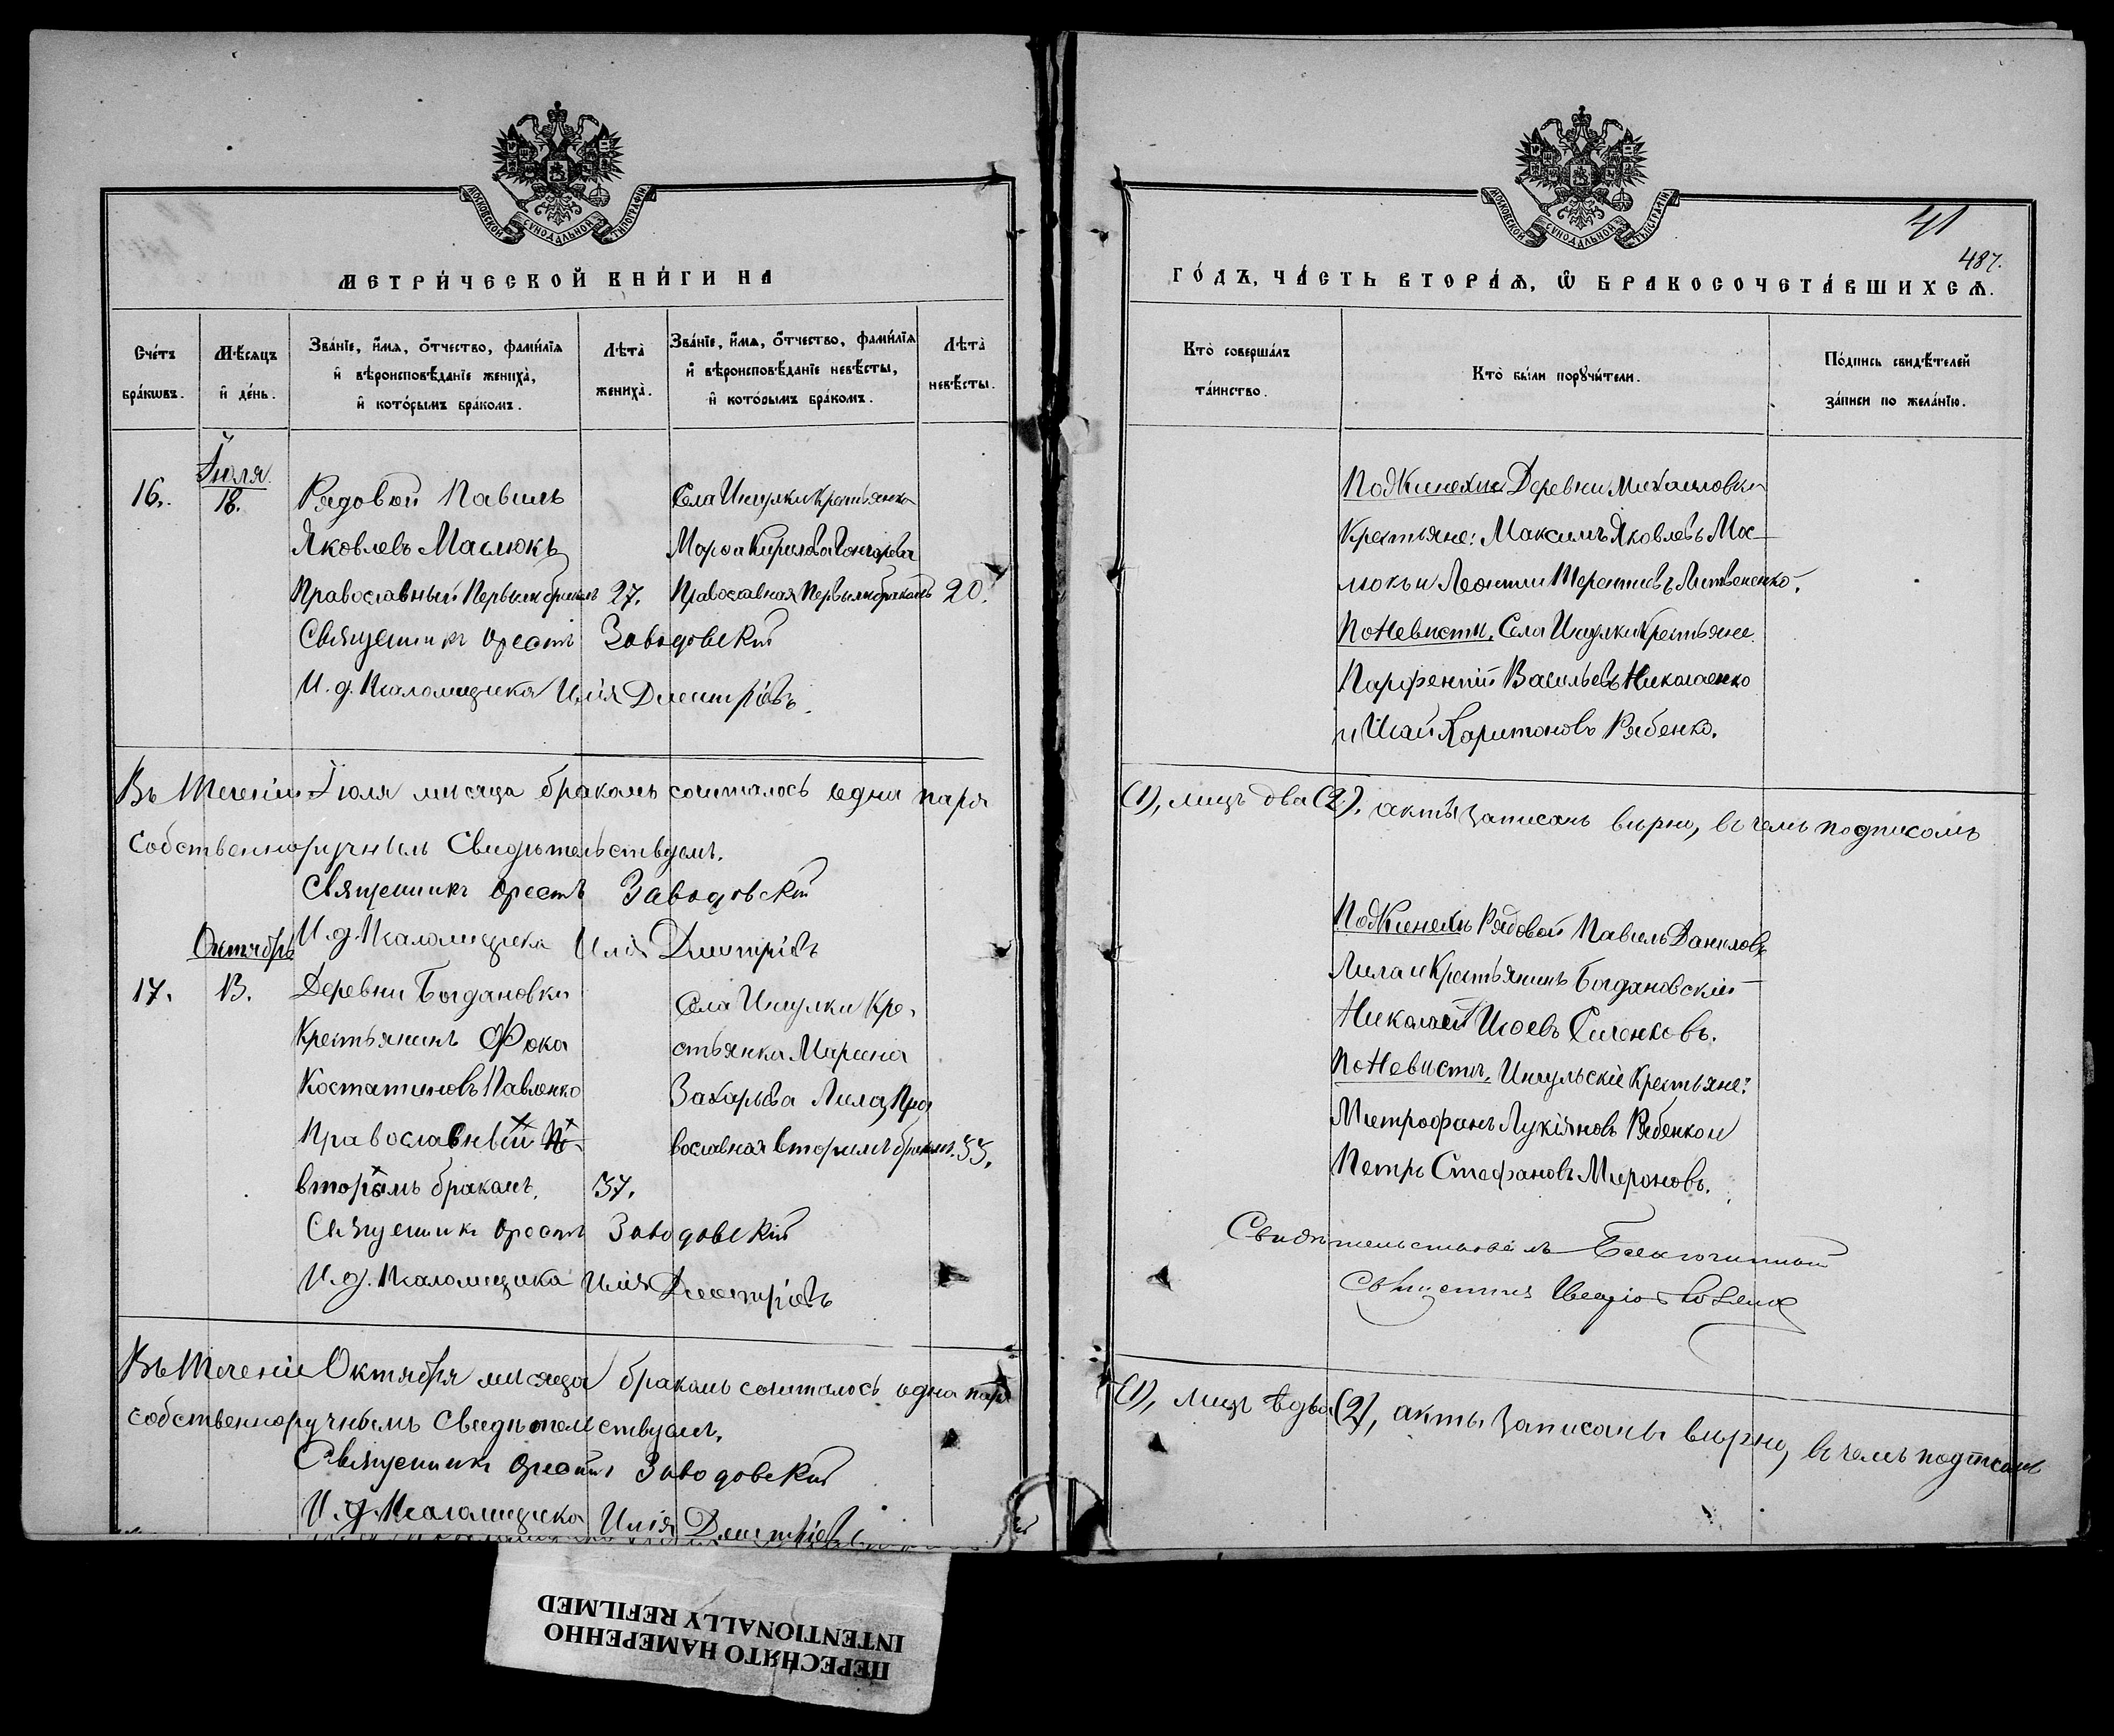 МОСКОВСКОЙ СѴНОДАЛЬНОЙ ТИПОГРАФІИ
МЕТРИ́ЧЕСКОЙ КНИ́ГИ НА
Сче́тъ бра́кѡвъ.
Мѣ́сяцъ и҆ де́нь.
Зва́нїе, и҆́мѧ, ѻ҆́тчество, фами́лїѧ
и҆ вѣроисповѣ́данїе женихà,
и҆ кото́рымъ бра́комъ.
Лѣтà женихà.
Зва́нїе, и҆́мѧ, ѻ҆́тчество, фами́лїѧ
и҆ вѣроисповѣ́данїе невѣ́сты,
и҆ кото́рымъ бра́комъ.
Лѣтà невѣ́сты.
Іюля
16. 18.
Рядовой Павелъ
Яковлевъ Маслюкъ
Православный Первымъ бракомъ 27.
Села Ингулки Крестьянка
Марѳа Кирилова Гончарова
Православная Первымъ бракомъ 20.
Священникъ Орестъ Заводовскій
И. д. Псаломщика Илія Дмитріевъ.
Въ теченіи Іюля мѣсяца бракомъ сочиталось одна пара
собственноручнымъ Свидѣтельствуемъ.
Священникъ Орестъ Заводовскій
И. д. Псаломщика Илія Дмитріевъ
Октябрь
17. 13.
Деревни Богдановки
Крестьянинъ Фока
Костатиновъ Павленко
Православный
вторымъ бракомъ. 37.
Села Ингулки Кре-
стьянка Марина
Захарьева Лила, Пра
вославная вторымъ бракомъ. 35.
Священникъ Орестъ Заводовскій
И. д. Псаломщика Илія Дмитріевъ
Въ теченіи Октября мѣсяца бракомъ сочиталось одна пара
собственноручнымъ Свидѣтельствуемъ.
Священникъ Орестъ Заводовскій
И. д. Псаломщика Илія Дмитріевъ
МОСКОВСКОЙ СѴНОДАЛЬНОЙ ТИПОГРАФІИ
41
487.
ГО́ДЪ, ЧА́СТЬ ВТОРА́Ѧ, Ѽ БРАКОСОЧЕТА́ВШИХСѦ.
Кто̀ соверша́лъ
та́инство.
Кто̀ бы́ли порꙋчи́тели.
По́дпись свидѣ́телей
за́писи по жела́нїю.
По Женихѣ Деревни Михайловки
Крестьяне: Максимъ Яковлевъ Мас-
люкъ и Леонтій Терентіевъ Литвененко.
По Невѣстѣ, Села Ингулки Крестьяне
Парфеній Васильевъ Николаенко
и Исай Харитоновъ Рябенко.
(1), лицъ два (2). актъ записанъ вѣрно, въ чемъ подписомъ
По Женихѣ Рядовой Павелъ Даниловъ
Лила и Крестьянинъ Богдановскій
Николай Силенковъ.
По Невѣстѣ, Ингульскіе Крестьяне:
Метрофанъ Лукіяновъ Рябенко и
Петръ Стефановъ Мироновъ.
Свидѣтельствовалъ Благочинный
Священникъ
(1), лицъ два (2), акты записаны вѣрно, въ чемъ подписомъ
ПЕРЕСНЯТО НАМЕРЕННО
INTENTIONALLY REFILMED